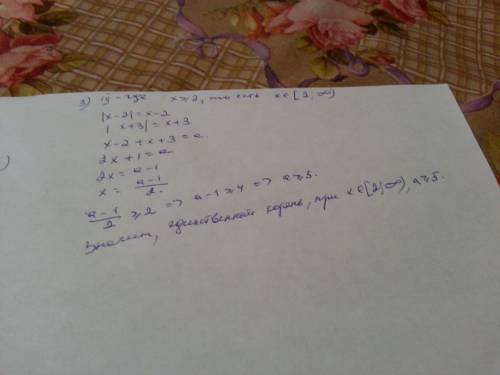 3) iy - где x ≥ 2, то есть x ∈ [2; ∞)
|x-2| = x-2
|x+3| = x+3
x-2+x+3 = a.
2x+1 = a
2x = a-1
x = \frac{a-1}{2}.
\frac{a-1}{2} ≥ 2 => a-1 ≥ 4 => a ≥ 5.
Значит, единственный корень, при x ∈ [2; ∞), a ≥ 5.
)